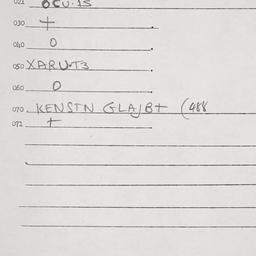 021 OCU-15
030 +
040 0
050 XARUT3
060 0
070 KENSTN GLAJBT (488
071 +